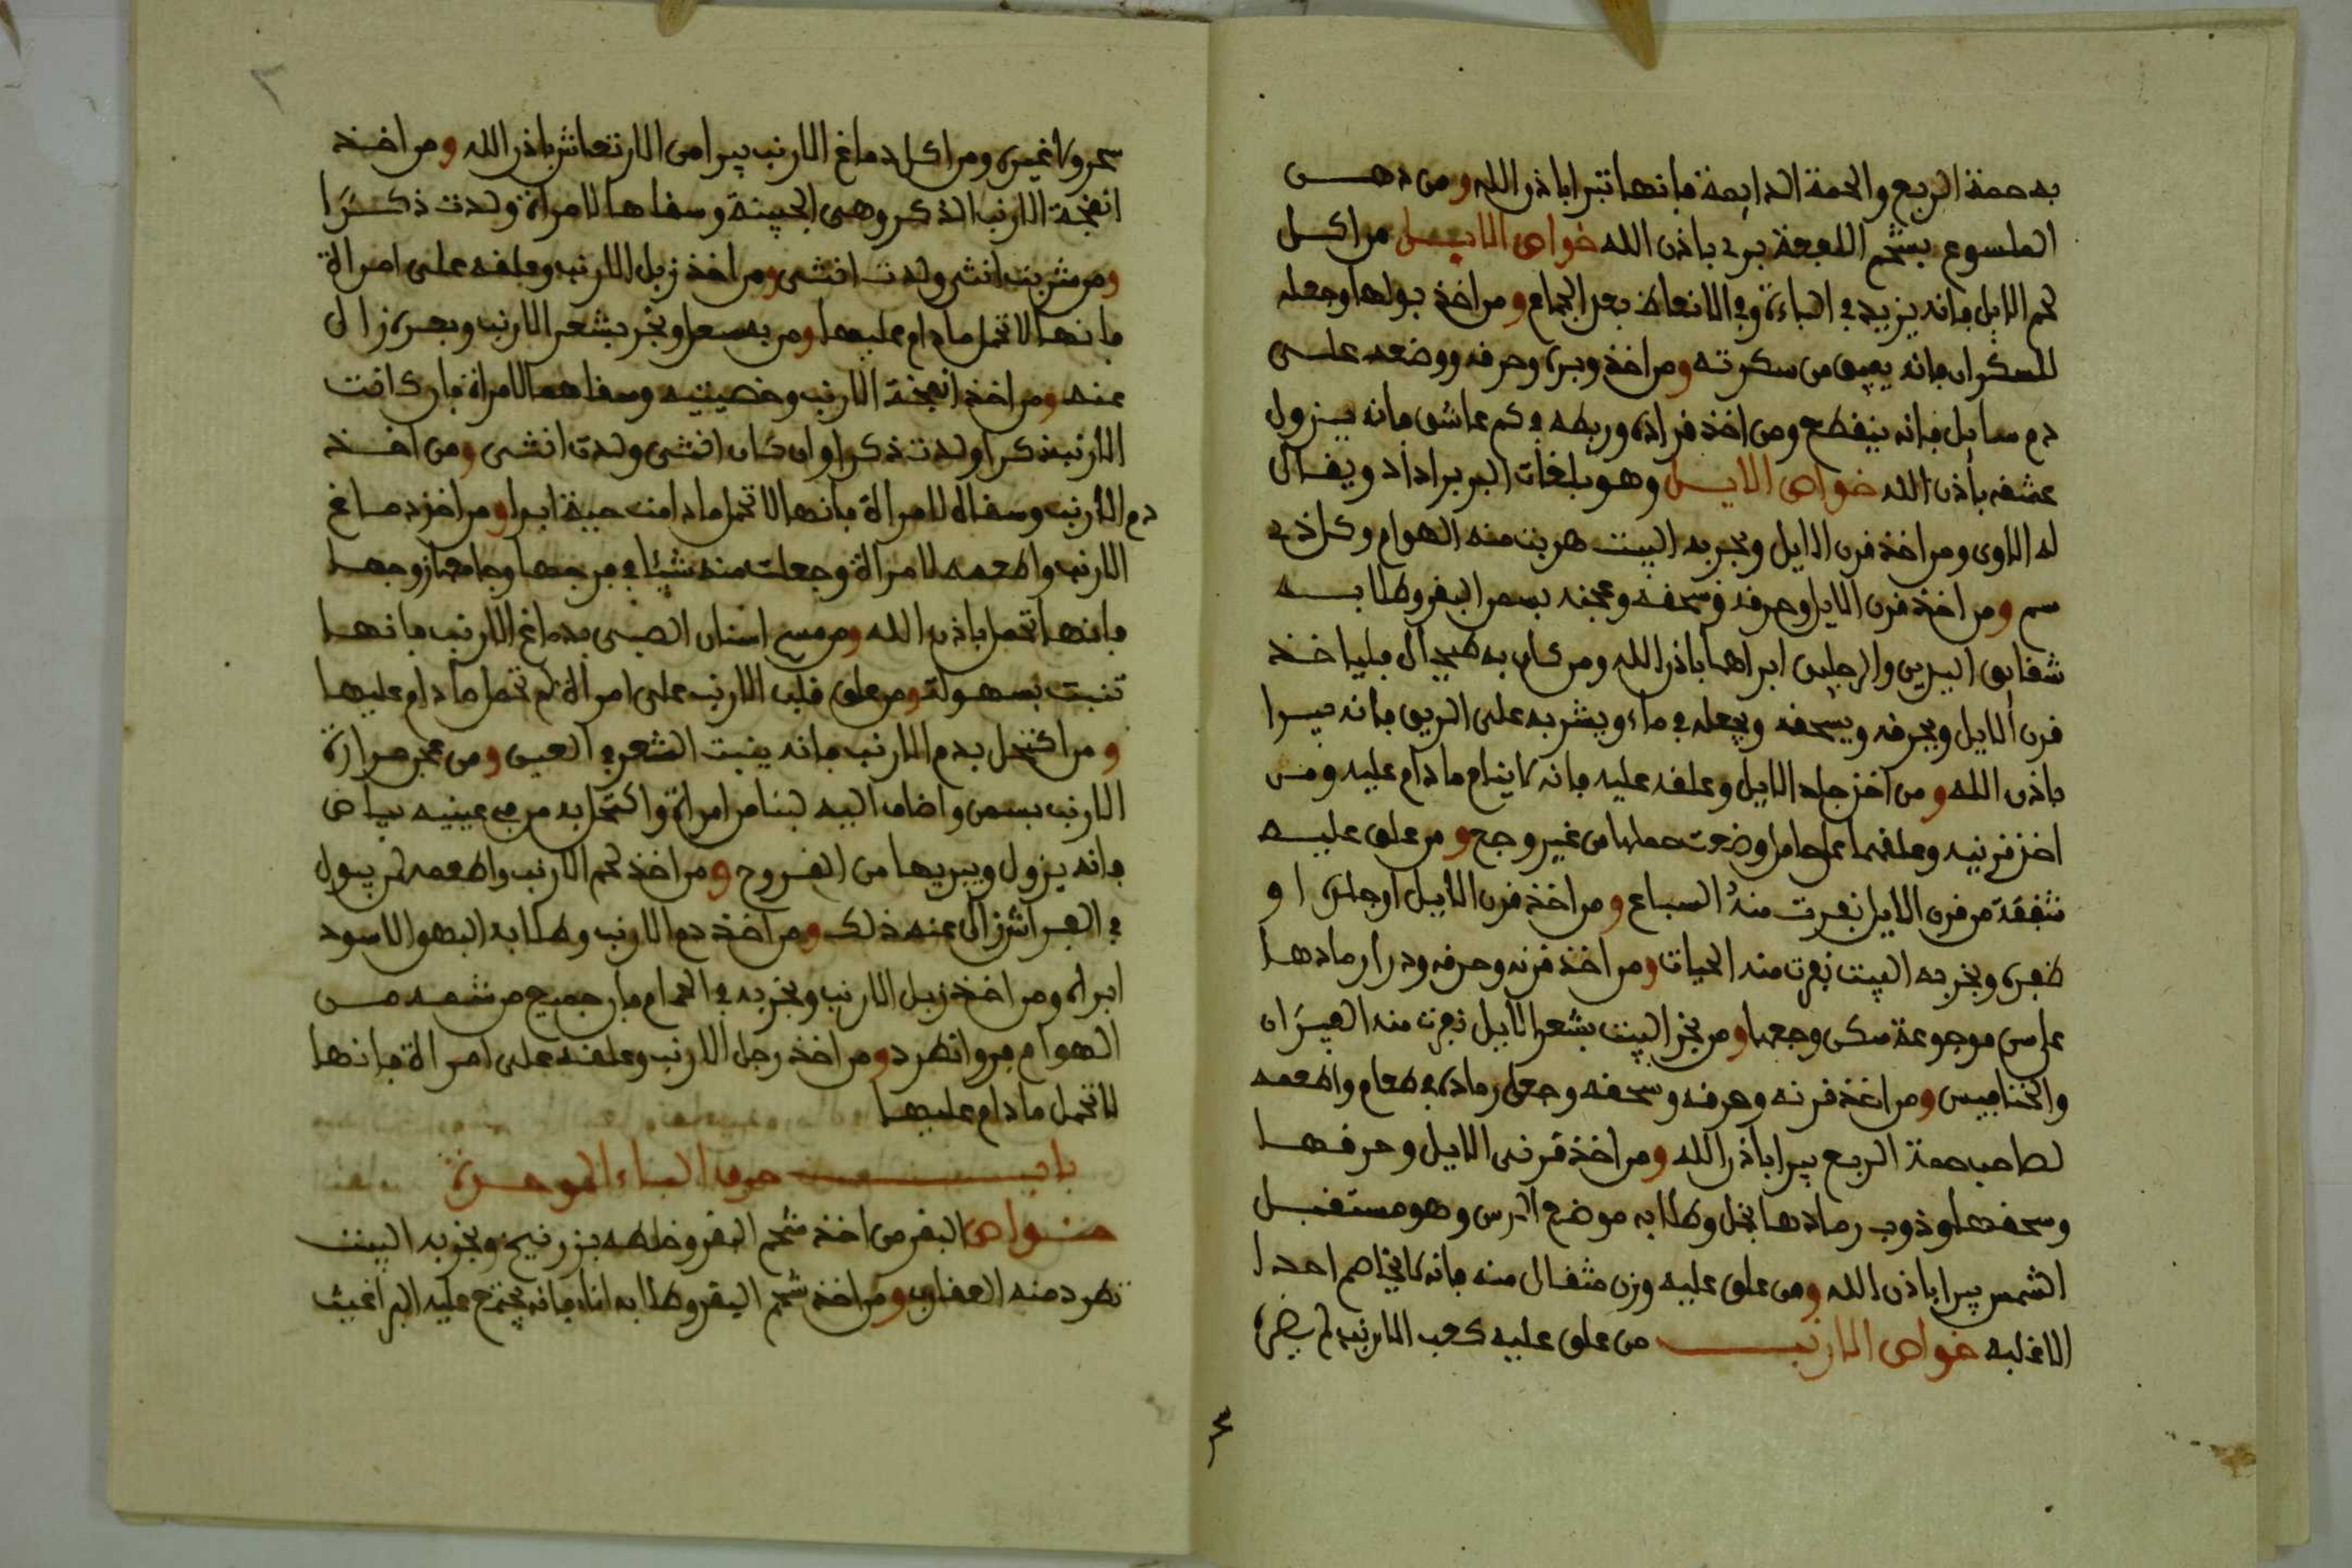 به حمة الربع والحمة الدايمة فانها تبرا باذن الله ومن دهن
الملسوع بشحم اللفعة برى باذن الله خواص الابل من اكل
لحم الابل فانه يزيد في الباءة وفي الانعاظ بعد الجماع ومن اخذ بولها وجعله
للسكران فانه يفيق من سكرته ومن اخذ وبره وحرقه ووضعه على
دم سايل فانه ينقطع ومن اخذ قراده وربطه في كم عاشق فانه يزول
عشقه باذن الله خواص الايل وهو بلغات البربر اداد ويقال
له الاوى ومن اخذ قرن الايل وبخر به البيت هربت منه الهوام وكل ذى
سم ومن اخذ قرن الايل وحرقه وسحقه وعجنه بسمن البقر وطلا به
شقايق اليدين والرجلين ابراها باذن الله ومن كان به طيحال فلياخذ
قرن الايل ويحرقه ويسحقه ويجعله في ماء ويشربه على الريق فانه يبرا
باذن الله ومن اخذ جلد الايل وعلقه عليه فانه لا ينام ما دام عليه ومن
اخذ قرنيه وعلقهما على حامل وضعت حملها من غير وجع ومن علق عليه
شقفة من قرن الايل نفرت منه السباع ومن اخذ قرن الايل او جلده او
ظفره وبخر به البيت نفرت منه الحيات ومن اخذ قرنه وحرقه وذرا رمادها
على سن موجوعة سكن وجعها ومن بخر البيت بشعر الايل نفرت منه الفيران
والخنافيس ومن اخذ قرنه وحرقه وسحقه وجعل رماده في طعام واطعمه
لصاحب حمة الربع يبرا باذن الله ومن اخذ قرنى الايل وحرقها
وسحقها وذوب رمادها بخل وطلا به موضع البرص وهو مستقبل
الشمس يبرا باذن الله ومن علق عليه وزن مثقال منه فانه لا يخاصم احدا
الا غلبه خواص الارنب من علق عليه كعب الارنب لم يضره
سحر ولا غيره ومن اكل دماغ الارنب يبرا من الارتعاش باذن الله ومن اخذ
انفجة الارنب الذكر وهى الجبينة وسقاها لامراة ولدت ذكرا
ومن شربت انثى ولدت انثى ومن اخذ زبل الارنب وعلقه على امراة
فانها لا تحمل ما دام عليها ومن به سعل وبخر بشعر الارنب وبعره زال
عنه ومن اخذ انفجة الارنب وخصيتيه وسقاهما لامراة فان كانت
الارنب ذكرا ولدت ذكرا وان كان انثى ولدت انثى ومن اخذ
دم الارنب وسقاه لامراة فانها لا تحمل ما دامت حية ابدا ومن اخذ دماغ
الارنب واطعمه لامراة وجعلت منه شيئا في فرجها وجامعها زوجها
فانها تحمل باذن الله ومن مسح اسنان الصبى بدماغ الارنب فانها
تنبت بسهولة ومن علق قلب الارنب على امراة لم تحمل ما دام عليها
ومن اكتحل بدم الارنب فانه ينبت الشعر في العين ومن عجن مرارة
الارنب بسمن واضاف اليه لبنا من امراة واكتحل به من في عينيه بياض
فانه يزول ويبريها من القروح ومن اخذ لحم الارنب واطعمه لمن يبول
في الفراش زال عنه ذلك ومن اخذ دم الارنب وطلا به البهق الاسود
ابراه ومن اخذ زبل الارنب وبخر به في الحمام فان جميع من شمه من
الهوام فروا نطرد ومن اخذ رجل الارنب وعلقه على امراة فانها
لا تحمل ما دام عليها
باب حرف الباء الموحدة
خواص البقر من اخذ شحم البقر وخلطه بزرنيخ وبخر به البيت
تطرد منه العقارب ومن اخذ شحم البقر وطلا به اناء فانه يجتمع عليه البراغيث